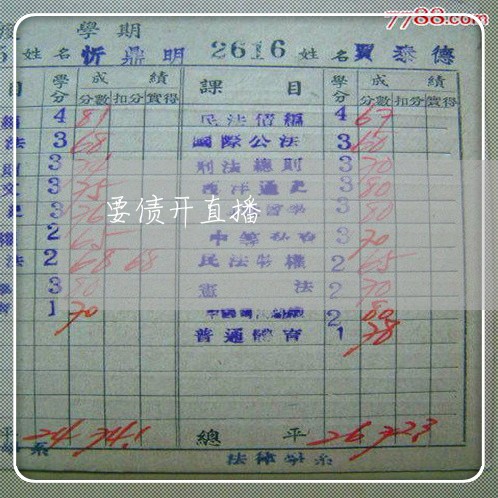 7788.com
學期
5 姓名 忻鼎明 2616 姓名 賈泰德
目 學分 成績 課目 學分 成績
分數 扣分 實得 分數 扣分 實得
4 81 民法債編 4 67
法 3 68 國際公法 3 60
3 刑法總則 3 70
3 75 西洋通史 3 80
3 3 80
2 65 3 70
法 2 68 68 民法物權 2 65
3 80 憲法 2 70
1 70 2 80
普通體育 1 78
要债开直播
平 24 74.1 總平 26 72.3
系 法律學系